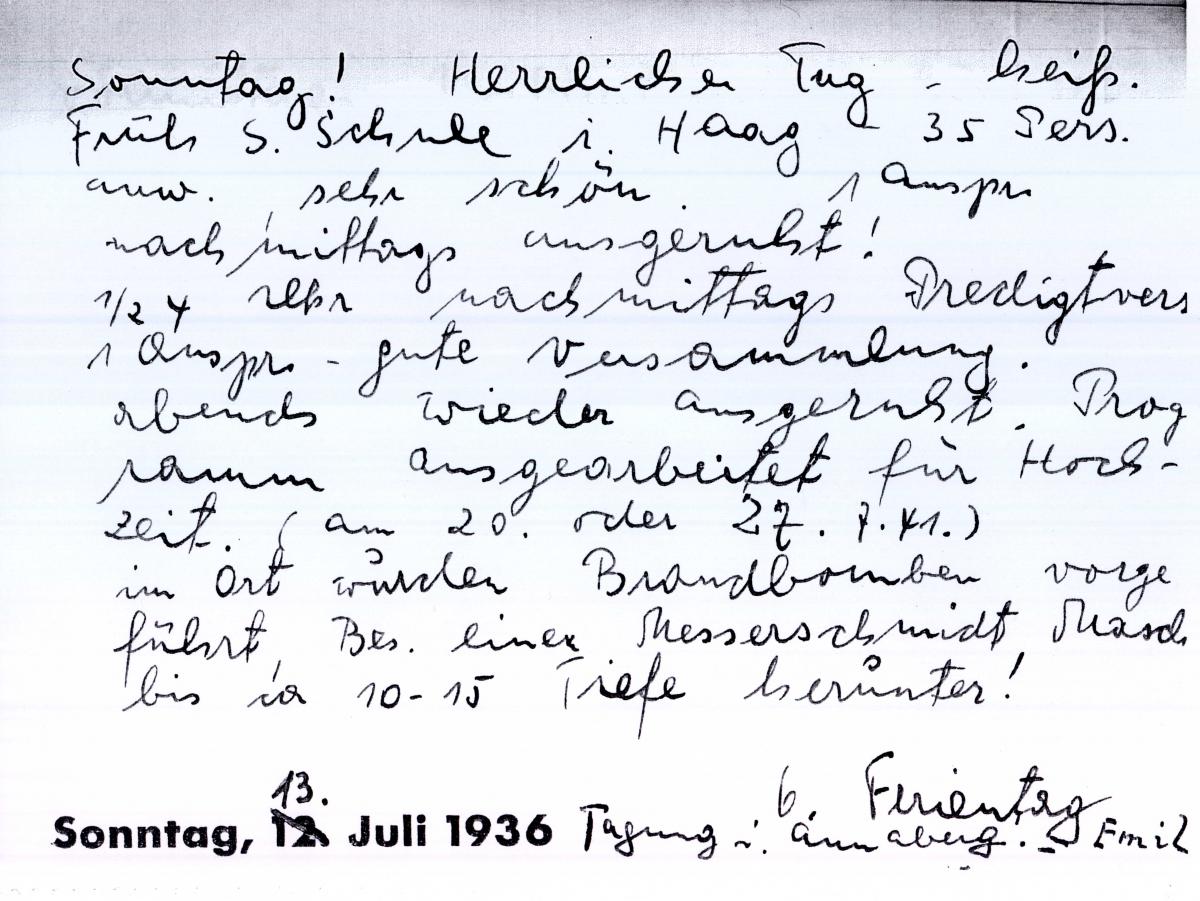 Sonntag! Herrlicher Tag - heiß.
Früh S. Schule i. Haag - 35 Pers.
anw. sehr schön. 1 Anspr
nachmittags ausgeruht!
1/2 4 Uhr nachmittags Predigtvers
1 Anspr. - gute Versammlung.
abends wieder ausgeruht. Prog
ramm ausgearbeitet für Hoch-
zeit. (am 20. oder 27. 7. 41.)
im Ort wurden Brandbomben vorge
führt, Bes. einer Messerschmidt Masch
bis ca 10-15 Tiefe herunter!
6. Ferientag
13.
Sonntag, 12. Juli 1936 Tagung i. Annaberg. - Emil